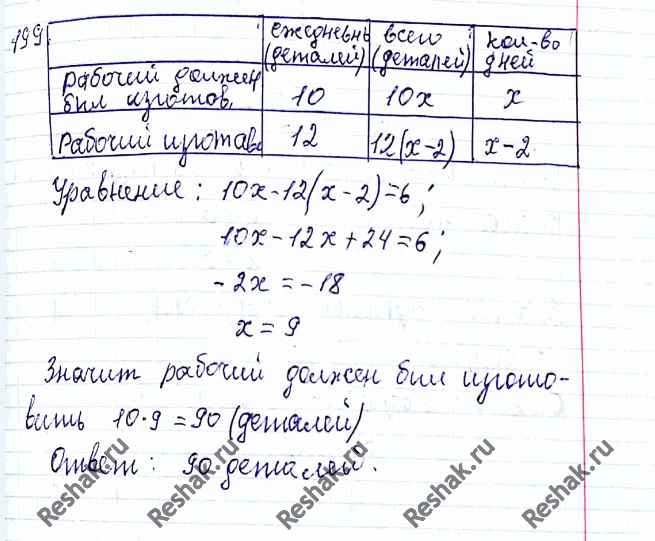 199
ежедневн (деталей) всего (деталей) кол-во дней
рабочий должен был изготов. 10 10x x
Рабочий изготавл 12 12(x-2) x-2
Уравнение: 10x-12(x-2)=6;
10x-12x+24=6;
-2x=-18
x=9
Значит рабочий должен был изгото-
вить 10·9=90 (деталей)
Ответ: 90 деталей.
Reshak.ru Reshak.ru Reshak.ru Reshak.ru Reshak.ru